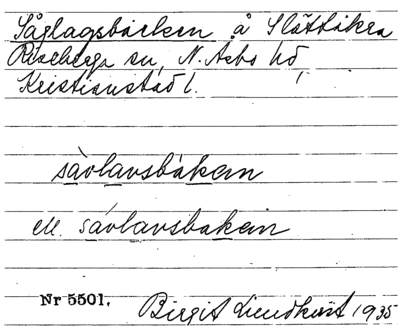 Såglagsbacken å Slättåkra
Riseberga sn, N. Åsbo hd,
Kristianstad l.
sàvlavsbàkein
ell. sávlavsbakein
Nr 5501.
Birgit Lundkvist 1935